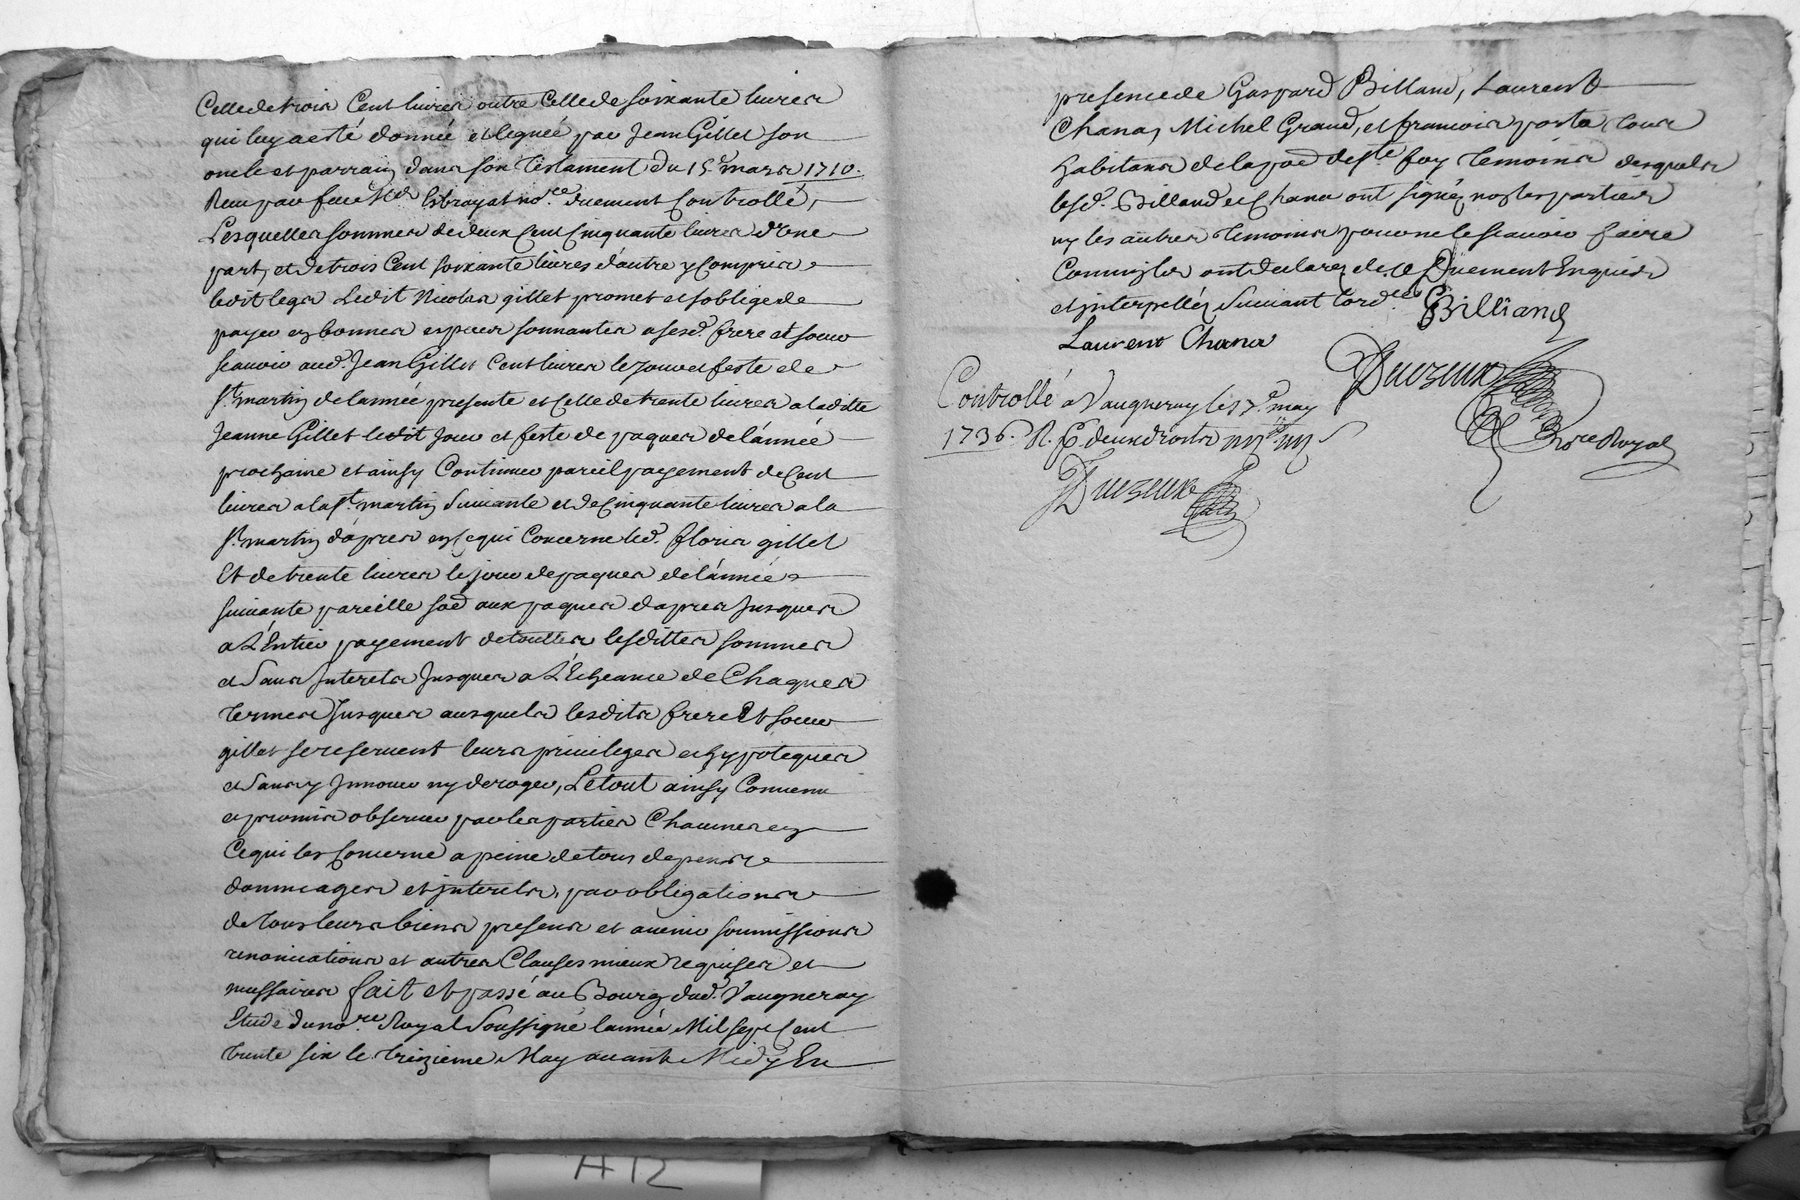 Celle de trois Cent livres outre Celle de soixante livres
qui luy a esté donnée et leguée par Jean Gillet son
oncle et parrain dans son Testament du 15e mars 1710.
Receu par feu Me Estrayat nore. duement Controllé,
Lesquelles sommes de deux Cent Cinquante livres d'une
part, et de trois Cent soixante livres d'autre y Compris
ledit legs Ledit Nicolas gillet promet et s'oblige de
payer en bonnes especes sonnantes a sesd. frere et soeur
scavoir aud. Jean Gillet Cent livres le jour et feste de
St. martin de lannée presente et Celle de trente livres a laditte
Jeanne Gillet ledit Jour et feste de paques de l'année
prochaine et ainsy Continuer pareil payement de Cent
livres a la St. martin Suivante et de Cinquante livres a la
St. martin d'apres en Ce qui Concerne led. floris gillet
Et de trente livres le jour de paques de l'année
suivante pareille sad aux paques d'apres Jusques
a L'Entier payement de touttes lesdittes sommes
et Sans Interets Jusques a L'Echeance de Chaques
termes Jusques ausquels lesdits frere Et soeur
gillet se reservent leurs privileges et hypoteques
et Sans y Innover ny deroger, Le tout ainsy Convenu
et promis observer par les parties Chacunes en
Ce qui les Concerne a peine de tous depens
dommages et interets, par obligations
de tous leurs biens presens et avenir soumissions
renonciations et autres Clauses mieux requises et
necessaires fait et passé au Bourg dud. Vaugneray
Etude du nore. Royal Soussigné lannée Mil sept Cent
trente six le treizieme May avant Midy En
presence de Gaspard Billand, Laurent
Chana, Michel Graud, et francois porta tous
habitans de la par de Ste foy temoins desquels
lesd. Billand et Chana ont signés non les parties
ny les autres temoins pour ne le scavoir faire
Comm'ils ont declarez de ce Duement Enquis
et interpellés Suivant l'ordce. Billiand
Laurent Chana
Controllé a Vaugneray le 17e may
1736. R.
nore Royal
A12